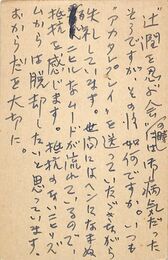 辻潤を忍ぶ会の時は御病気だった
そうですが、その後如何ですか。いつも
"アカタレプレイ"を送っていただきながら
失礼しています。世間にはヘンになまぬ
ニヒルなムードが流れているので、
抵抗を感じます。抵抗のないニヒリズ
ムからは脱却したいと思っています。
おからだを大切に。